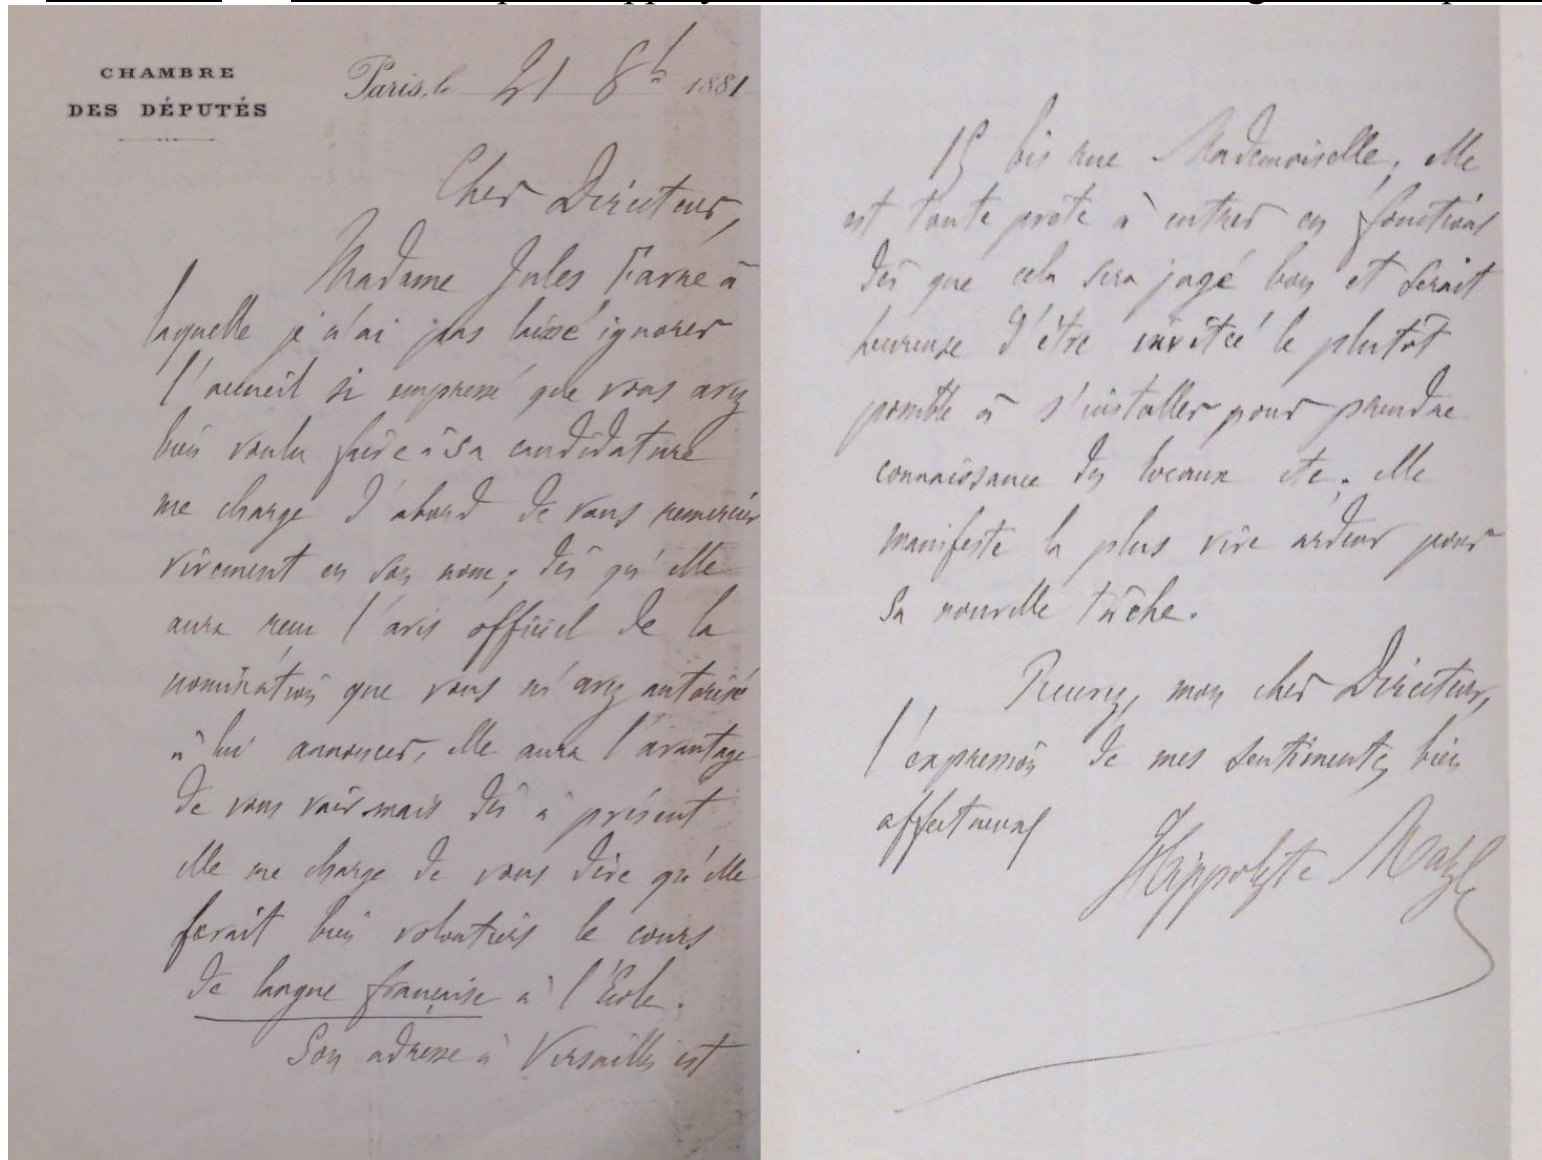 CHAMBRE
DES DÉPUTÉS
Paris, le 21 8b 1881
Cher Directeur,
Madame Jules Favre à
laquelle je n'ai pas laissé ignorer
l'accueil si empressé que vous avez
bien voulu faire à sa candidature
me charge d'abord de vous remercier
vivement en son nom ; dès qu'elle
aura reçu l'avis officiel de la
nomination que vous m'avez autorisé
à lui annoncer, elle aura l'avantage
de vous voir mais dès à présent
elle me charge de vous dire qu'elle
ferait bien volontiers le cours
de langue française à l'École.
Son adresse à Versailles est
15 bis rue Mademoiselle ; elle
est toute prête à entrer en fonctions
dès que cela sera jugé bon et serait
heureuse d'être invitée le plutôt
possible à s'installer pour prendre
connaissance des locaux etc. elle
manifeste la plus vive ardeur pour
sa nouvelle tâche.
Recevez, mon cher Directeur,
l'expression de mes sentiments bien
affectueux
Hippolyte Maze